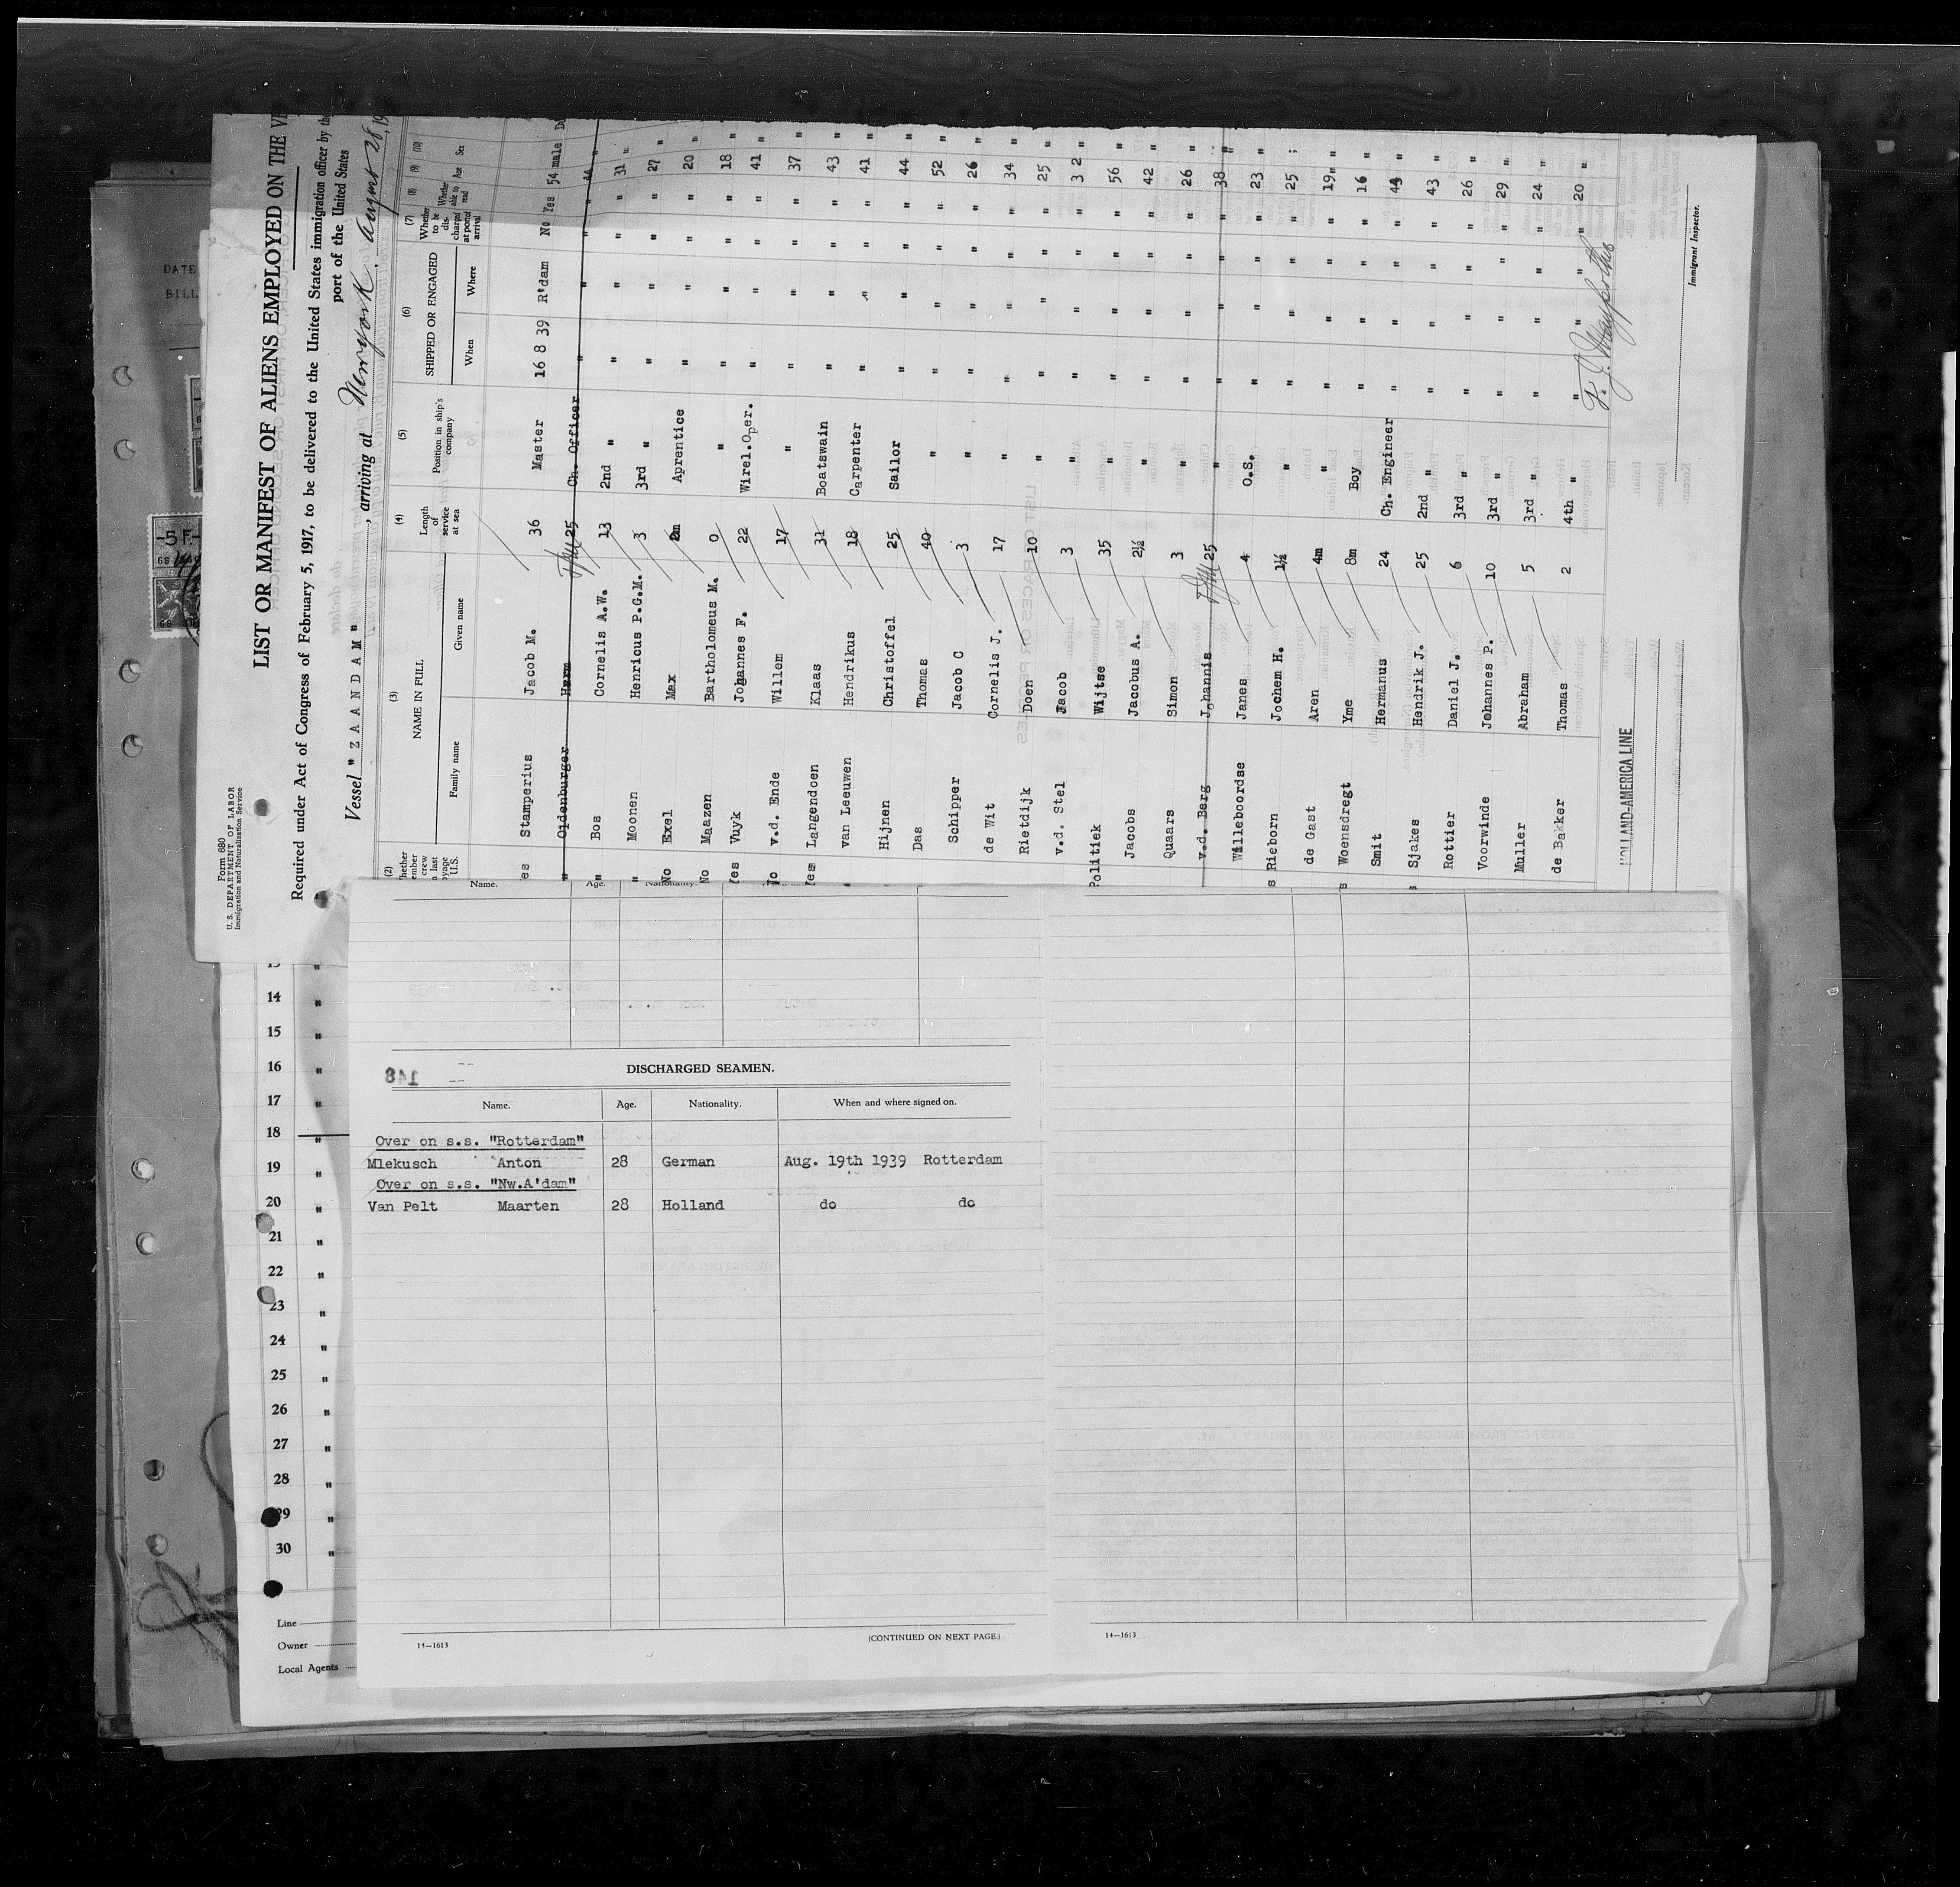 Form 680
U. S. DEPARTMENT OF LABOR
Immigration and Naturalization Service
LIST OR MANIFEST OF ALIENS EMPLOYED ON THE
Required under Act of Congress of February 5, 1917, to be delivered to the United States immigration officer by the
port of the United States
Vessel " ZAANDAM ", arriving at Newyork, August 28, 19
(2) (3) (4) (5) (6) (7) (8) (9) (10)
NAME IN FULL
Family name Given name
Length of service at sea
Position in ship's company
SHIPPED OR ENGAGED
When Where
Whether to be discharged at port of arrival
Whether able to read
Age Sex
es Stamperius Jacob M. 36 Master 16 8 39 R'dam No Yes 54 male
" Oldenburger Harm 25 Ch. Officer " " " " 44 "
" Bos Cornelis A.W. 13 2nd " " " " " 31 "
" Moonen Henricus P.G.M. 3 3rd " " " " " 27 "
No Exel Max 2m Aprentice " " " " 20 "
No Maazen Bartholomeus M. 0 " " " " " 18 "
Yes Vuyk Johannes F. 22 Wirel.Oper. " " " " 41 "
No v.d. Ende Willem 17 " " " " " 37 "
Yes Langendoen Klaas 31 Boatswain " " " " 43 "
" van Leeuwen Hendrikus 18 Carpenter " " " " 41 "
Hijnen Christoffel 25 Sailor " " " " 44 "
Das Thomas 40 " " " " " 52 "
Schipper Jacob C 3 " " " " " 26 "
de Wit Cornelis J. 17 " " " " " 34 "
Rietdijk Doen 10 " " " " " 25 "
v.d. Stel Jacob 3 " " " " " 32 "
Politiek Wijtse 35 " " " " " 56 "
Jacobs Jacobus A. 2½ " " " " " 42 "
Quaars Simon 3 " " " " " 26 "
v.d. Berg Johannis 25 " " " " " 38 "
Willeboordse Janes 4 O.S. " " " " 23 "
s Rieborn Jochem H. 1½ " " " " " 25 "
de Gast Aren 4m " " " " " 19 "
s Woensdregt Yme 8m Boy " " " " 16 "
Smit Hermanus 24 Ch. Engineer " " " " 44 "
s Sjakes Hendrik J. 25 2nd " " " " " 43 "
Rottier Daniel J. 6 3rd " " " " " 26 "
Voorwinde Johannes P. 10 3rd " " " " " 29 "
Muller Abraham 5 3rd " " " " " 24 "
de Bakker Thomas 2 4th " " " " " 20 "
HOLLAND-AMERICA LINE
Immigrant Inspector.
DATE
BILL
-5 F.-
Name. Age. Nationality.
148
DISCHARGED SEAMEN.
Name. Age. Nationality. When and where signed on.
Over on s.s. "Rotterdam"
Mlekusch Anton 28 German Aug. 19th 1939 Rotterdam
Over on s.s. "Nw.A'dam"
Van Pelt Maarten 28 Holland do do
14—1613
(CONTINUED ON NEXT PAGE)
14—1613
13 "
14 "
15 "
16 "
17 "
18 "
19 "
20 "
21 "
22 "
23 "
24 "
25 "
26 "
27 "
28 "
29 "
30 "
Line
Owner
Local Agents